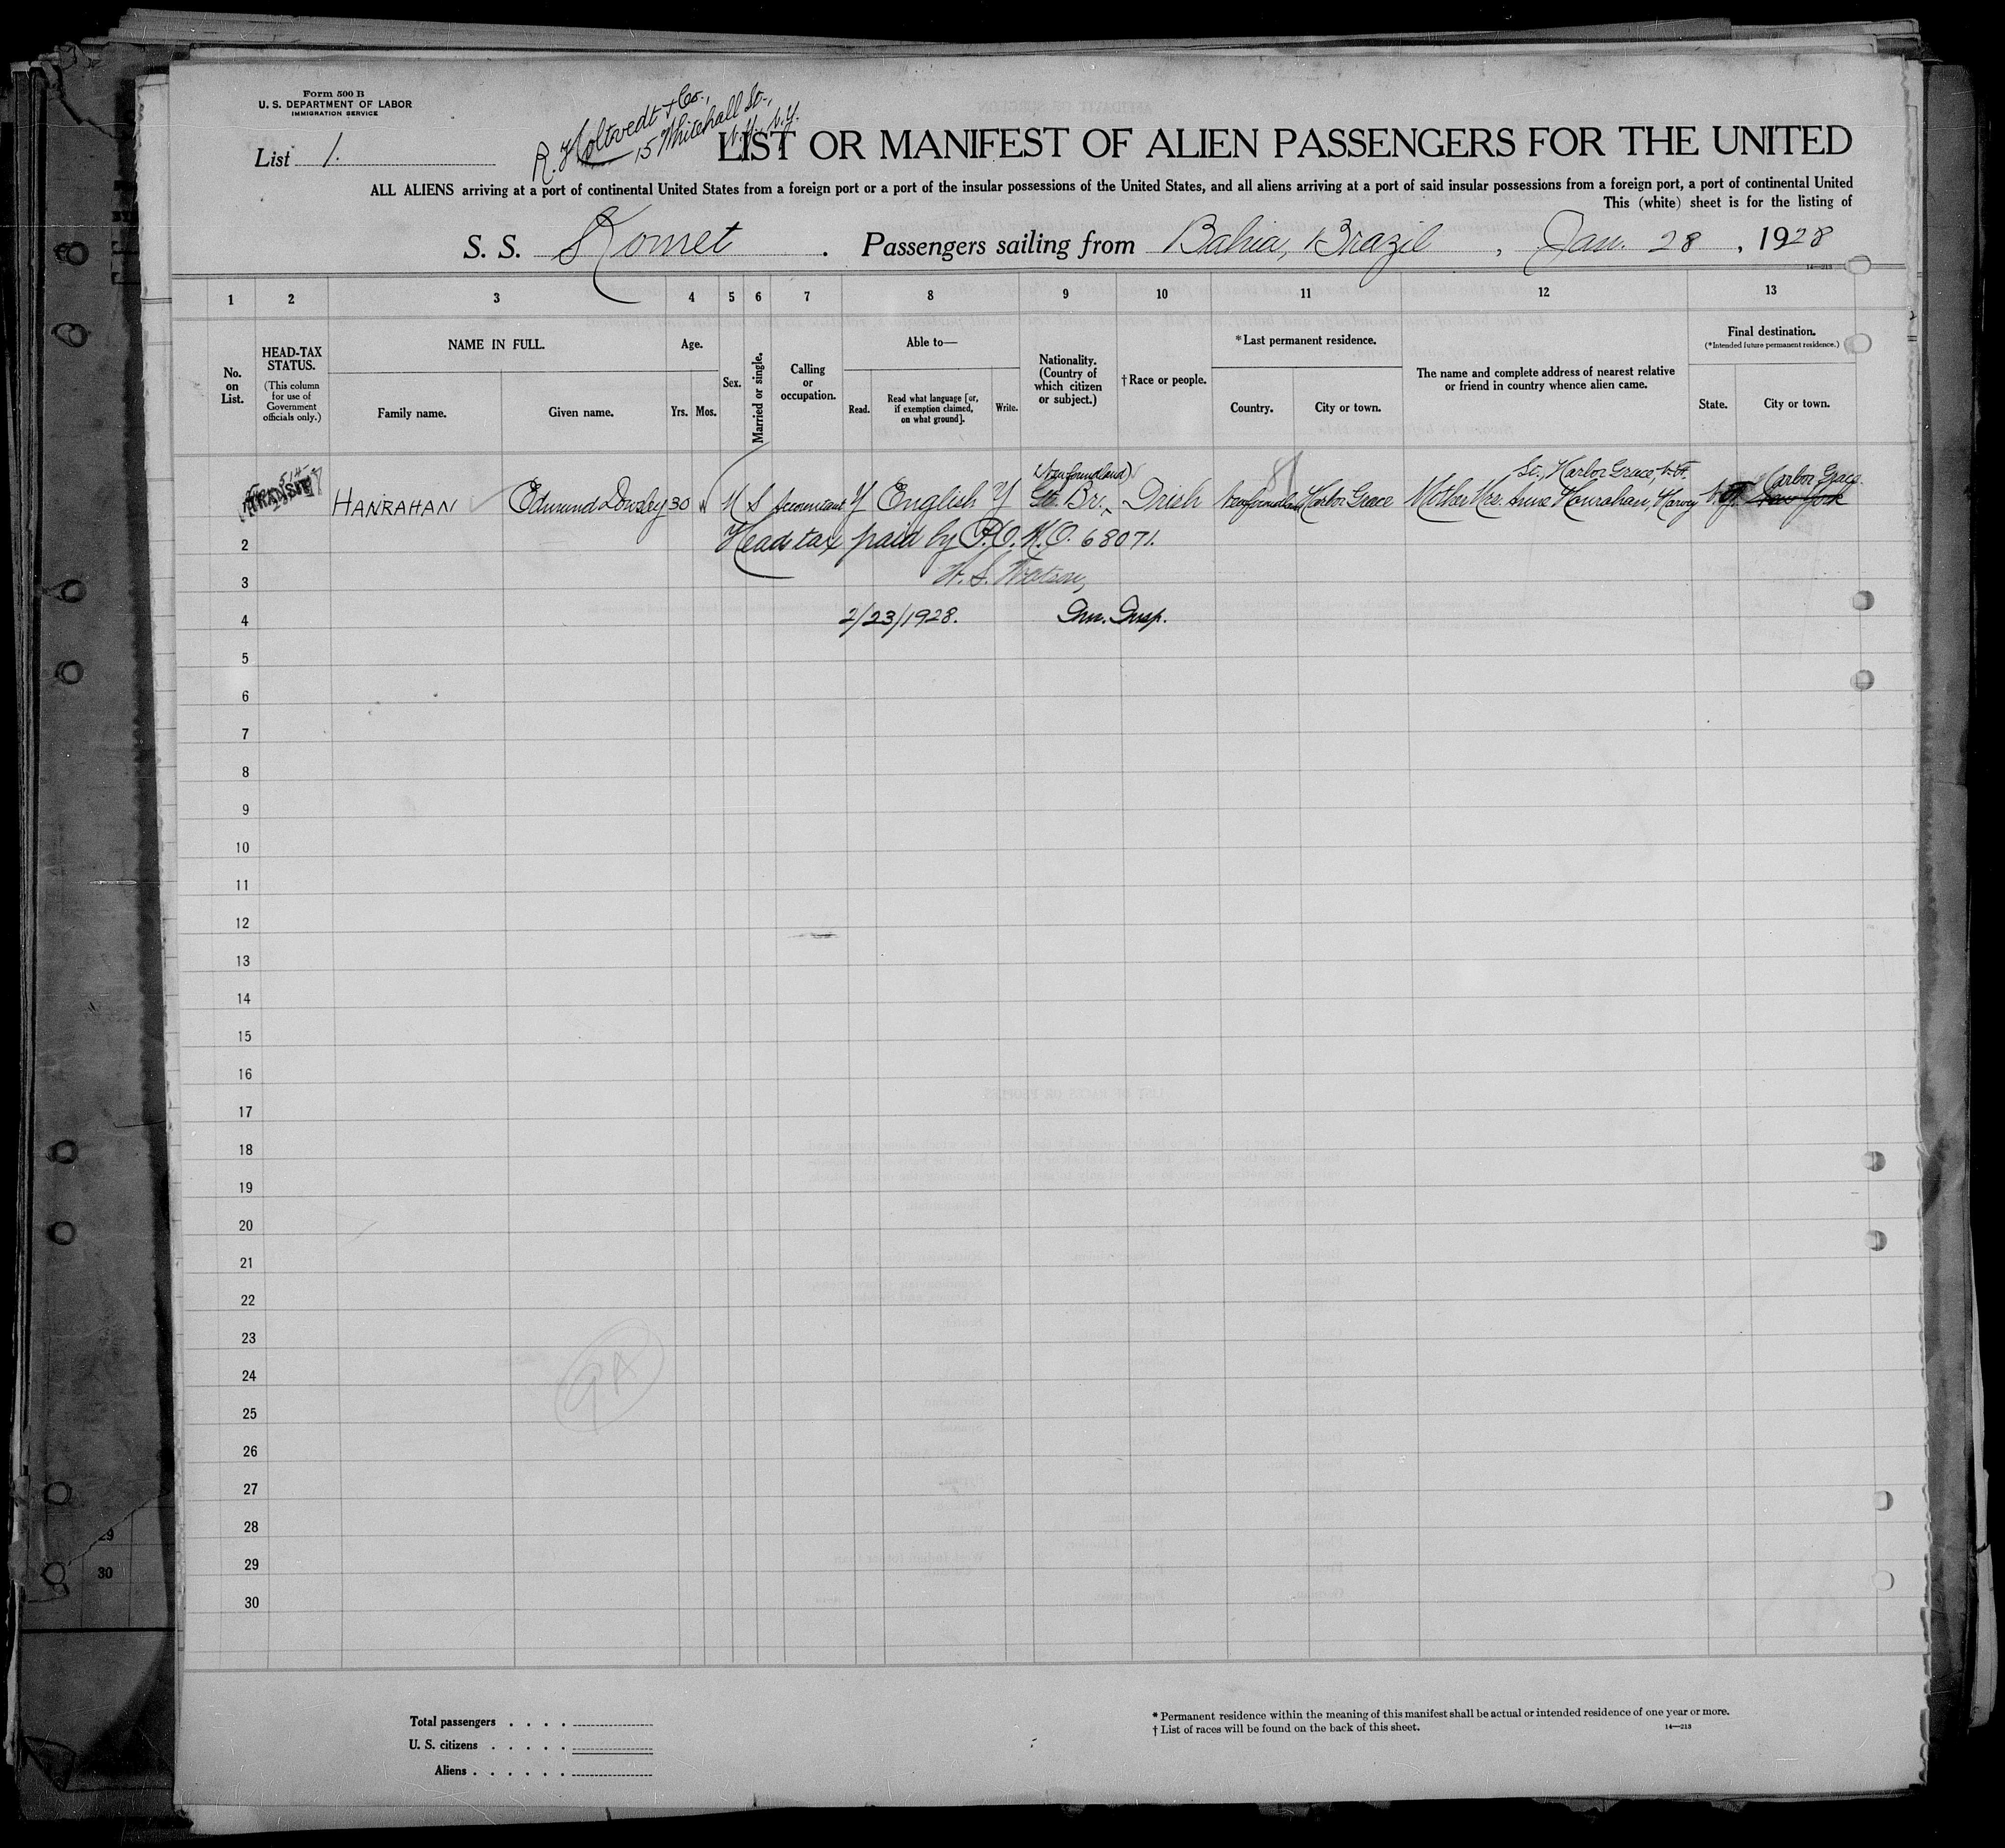 Form 500 B
U. S. DEPARTMENT OF LABOR
IMMIGRATION SERVICE
List 1.
R. Holtvedt & Co.,
15 Whitehall St.,
N.Y. N.Y.
LIST OR MANIFEST OF ALIEN PASSENGERS FOR THE UNITED
ALL ALIENS arriving at a port of continental United States from a foreign port or a port of the insular possessions of the United States, and all aliens arriving at a port of said insular possessions from a foreign port, a port of continental United
This (white) sheet is for the listing of
S. S. Komet . Passengers sailing from Bahia, Brazil , Jan. 28 , 1928
14—213
1 2 3 4 5 6 7 8 9 10 11 12 13
No. on List.
HEAD-TAX STATUS.
(This column for use of Government officials only.)
NAME IN FULL.
Family name. Given name.
Age.
Yrs. Mos.
Sex.
Married or single.
Calling or occupation.
Able to—
Read. Read what language [or, if exemption claimed, on what ground]. Write.
Nationality. (Country of which citizen or subject.)
† Race or people.
*Last permanent residence.
Country. City or town.
The name and complete address of nearest relative or friend in country whence alien came.
Final destination.
(*Intended future permanent residence.)
State. City or town.
(Newfoundland) St., Harbor Grace, N.F. Harbor Grace
TRANSIT HANRAHAN Edmund Dowsley 30 M S Accountant Y English Y Gt. Br. Irish Newfoundland Harbor Grace Mother Mrs. Anne Hanrahan, Harvey New York
2 Head tax paid by P.O.M.O. 68071.
3 W. S. Watson,
4 2/23/1928. Imm. Insp.
5
6
7
8
9
10
11
12
13
14
15
16
17
18
19
20
21
22
23
24
25
26
27
28
29
30
29
30
Total passengers . . . .
U. S. citizens . . . . .
Aliens . . . . . .
* Permanent residence within the meaning of this manifest shall be actual or intended residence of one year or more.
† List of races will be found on the back of this sheet.
14—213